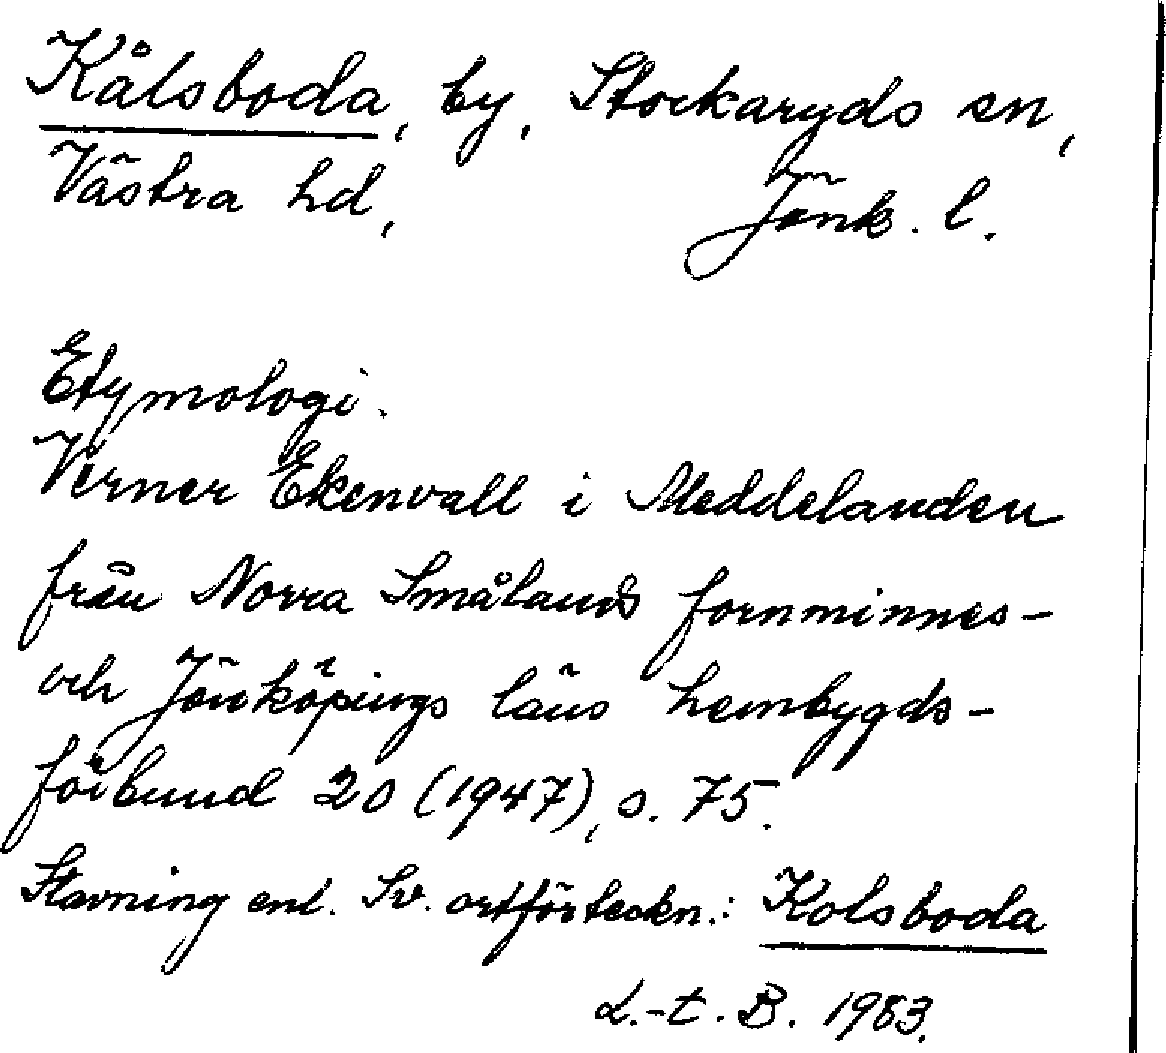 Kålsboda, by, Stockaryds sn,
Västra hd, Jönk. l.
Etymologi.
Verner Ekenvall i Meddelanden
från Norra Smålands fornminnes-
och Jönköpings läns hembygds-
förbund 20 (1947), s. 75.
Stavning enl. Sv. ortförteckn.: Kolsboda
L.-t. B. 1983.